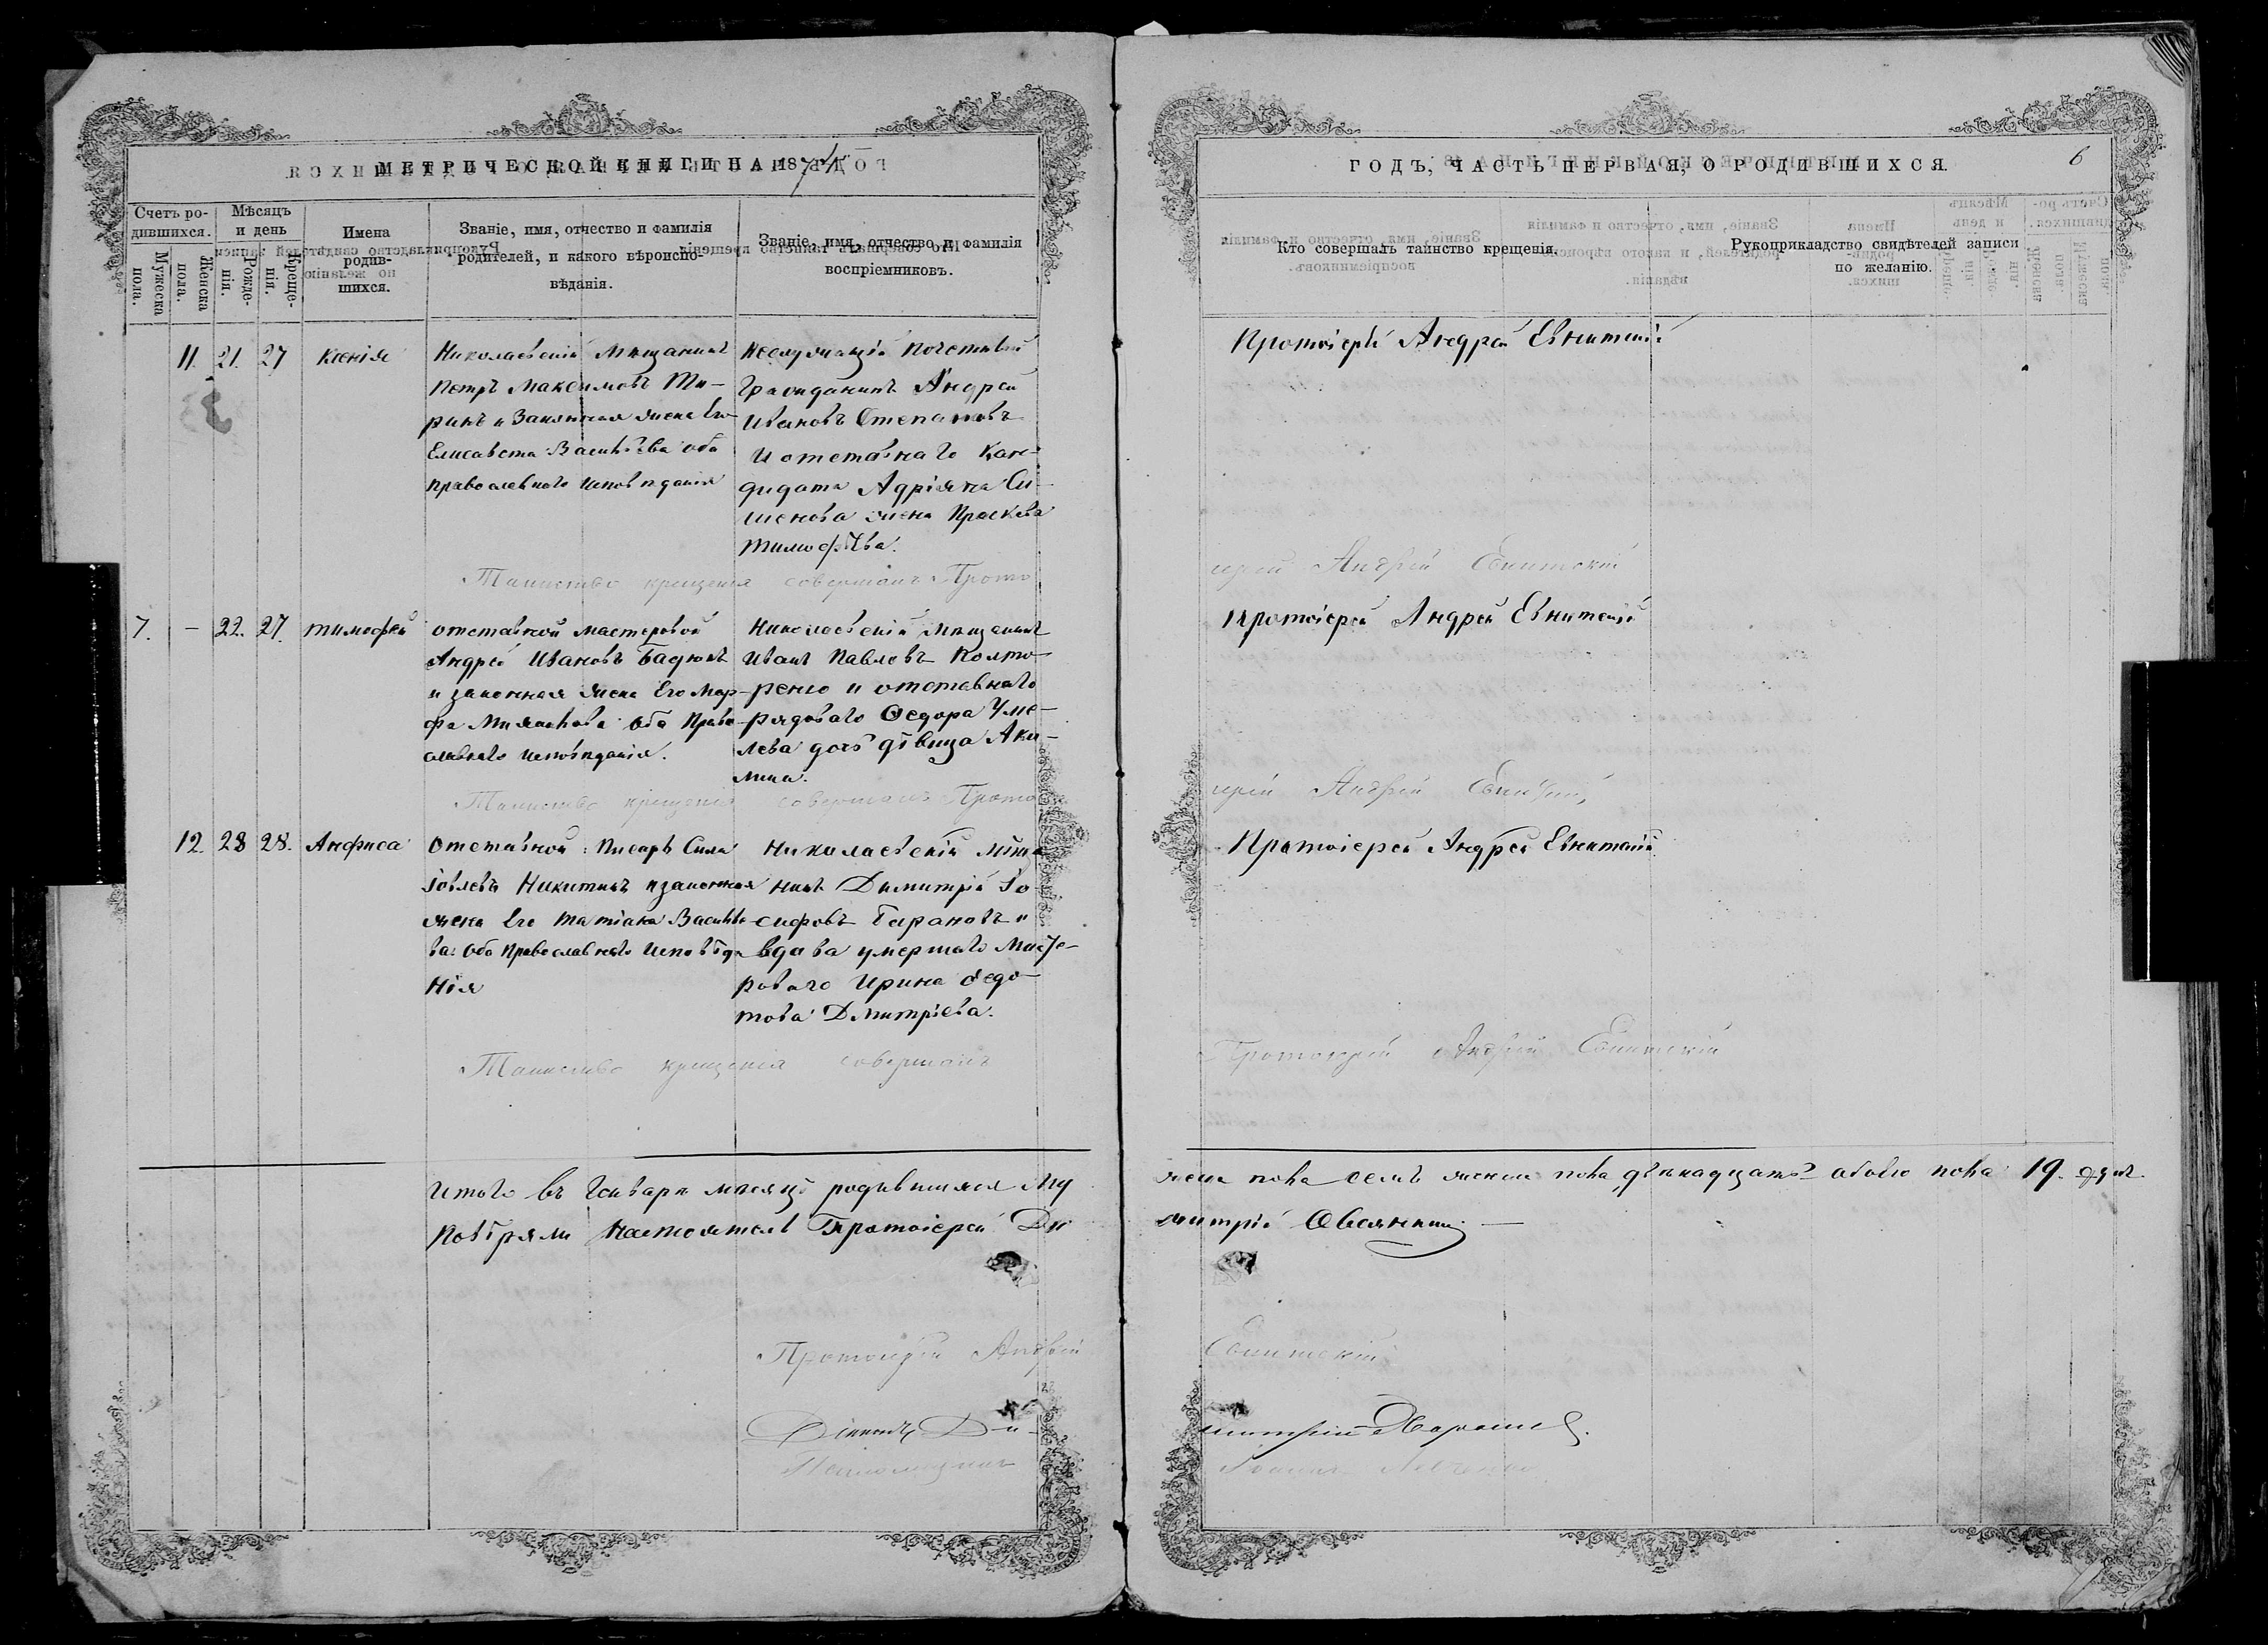 МЕТРИЧЕСКОЙ КНИГИ НА 1874
Счетъ ро-
дившихся.
Мужеска пола.
Женска пола.
Мѣсяцъ
и день
Рожде-
нія.
Креще-
нія.
Имена
родив-
шихся.
Званіе, имя, отчество и фамилія
родителей, и какого вѣроиспо-
вѣданія.
Званіе, имя, отчество и фамилія
воспріемниковъ.
11. 21. 27 Ксенія
Николаевскій Мѣщанинъ
Петръ Максимовъ Ти-
ринъ и Законная жена Его
Елисавета Васильева оба
православнаго исповѣданія
Неслужащій Почетный
Гражданинъ Андрей
Ивановъ Степановъ
и отставнаго Кан-
дидата Адріяна Си-
менова жена Праскева
Тимофѣева.
Таинство крещенія совершалъ Прото
7. – 22. 27. Тимофей
отставной мастеровой
Андрей Ивановъ
и законная жена Его Мар-
фа оба Право
славнаго исповѣданія.
Николаевскій Мѣщанинъ
Иванъ Павловъ Колто-
ренко и отставнаго
рядоваго Ѳедора Уме-
лева дочь дѣвица Аки-
лина.
Таинство крещенія совершалъ Прото
12. 28 28. Анфиса
Отставной Писарь Сила
Іовлевъ Никитинъ и законная
жена Его Татіана Василье
ва: Оба Православнаго Исповѣда
нія
Николаевскій Мѣща
нинъ Димитрій Іо
сифовъ Тарановъ и
вдова умершаго Масте-
роваго Ирина Ѳедо-
това Дмитріева.
Таинство крещенія совершалъ
Итого въ Генварѣ мѣсяцѣ родившихся Му
Повѣряли Настоятель Протоіерей Ди
Протоіерей Андрей
Діаконъ Ди-
ГОДЪ, ЧАСТЬ ПЕРВАЯ, О РОДИВШИХСЯ.
6
Кто совершалъ таинство крещенія.
Рукоприкладство свидѣтелей записи
по желанію.
Протоіерей Андрей Евнитскій
іерей Андрей Евнитскій
Протоіерей Андрей Евнитскій
іерей Андрей Евнитскій
Протоіерей Андрей Евнитскій
Протоіерей Андрей Евнитскій
жеска пола семь женска пола двѣнадцать обоего пола 19. душъ.
митрій Овсянкинъ
Евнитскій
митрій